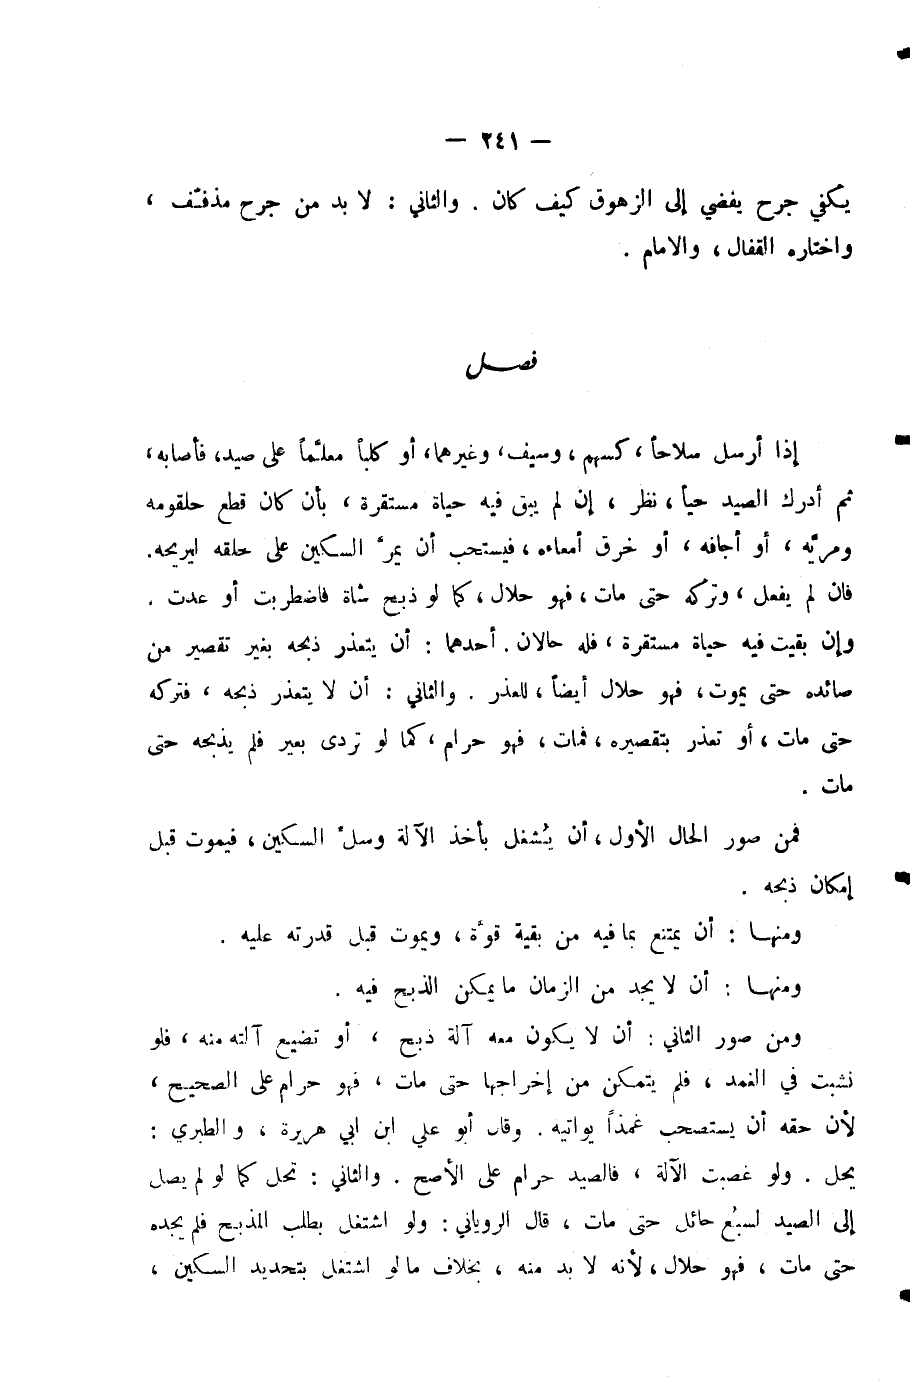 — ٢٤١ —
يكفي جرح يفضي إلى الزهوق كيف كان . والثاني : لا بد من جرح مذفّف ،
واختاره القفال ، والامام .
فصل
إذا أرسل سلاحاً ، كسهم ، وسيف ، وغيرهما ، أو كلباً معلَّماً على صيد ، فأصابه ،
ثم أدرك الصيد حياً ، نظر ، إن لم يبق فيه حياة مستقرة ، بأن كان قطع حلقومه
ومريَّه ، أو أجافه ، أو خرق أمعاءه ، فيستحب أن يمرَّ السكين على حلقه ليريحه.
فان لم يفعل ، وتركه حتى مات ، فهو حلال ، كما لو ذبح شاة فاضطربت أو عدت .
وإن بقيت فيه حياة مستقرة ، فله حالان . أحدهما : أن يتعذر ذبحه بغير تقصير من
صائده حتى يموت ، فهو حلال أيضاً ، للعذر . والثاني : أن لا يتعذر ذبحه ، فتركه
حتى مات ، أو تعذر بتقصيره ، فمات ، فهو حرام ، كما لو تردى بعير فلم يذبحه حتى
مات .
فمن صور الحال الأول ، أن يُشغل بأخذ الآلة وسلِّ السكين ، فيموت قبل
إمكان ذبحه .
ومنها : أن يمتنع بما فيه من بقية قوَّة ، ويموت قبل قدرته عليه .
ومنها : أن لا يجد من الزمان ما يمكن الذبح فيه .
ومن صور الثاني : أن لا يكون معه آلة ذبح ، أو تضيع آلته منه ، فلو
نشبت في الغمد ، فلم يتمكن من إخراجها حتى مات ، فهو حرام على الصحيح ،
لأن حقه أن يستصحب غمذاً يواتيه . وقال أبو علي ابن ابي هريرة ، والطبري :
يحل . ولو غصبت الآلة ، فالصيد حرام على الأصح . والثاني : تحل كما لو لم يصل
إلى الصيد لسبُع حائل حتى مات ، قال الروياني : ولو اشتغل بطلب المذبح فلم يجده
حتى مات ، فهو حلال ، لأنه لا بد منه ، بخلاف ما لو اشتغل بتحديد السكين ،